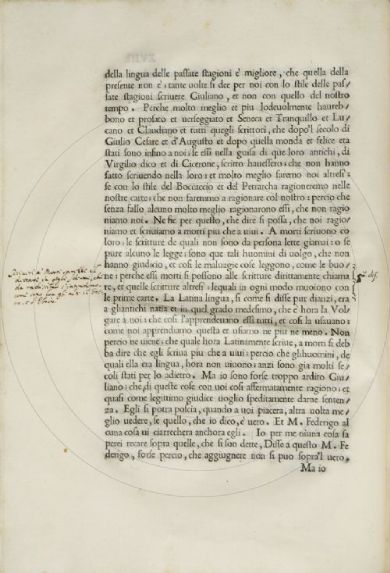 della lingua delle passate stagioni è migliore, che quella della
presente non è: tante uolte si dee per noi con lo stile delle pas/
sate stagioni scriuere Giuliano, et non con quello del nostro
tempo. Perche molto meglio et piu lodeuolmente haureb/
bono et prosato et uerseggiato et Seneca et Tranquillo et Lu/
cano et Claudiano et tutti quegli scrittori, che dopo'l secolo di
Giulio Cesare et d'Augusto et dopo quella monda et felice eta
stati sono infino a noi; se essi nella guisa di que loro antichi, di
Virgilio dico et di Cicerone, scritto hauessero; che non hanno
fatto scriuendo nella loro: et molto meglio faremo noi altresi;
se con lo stile del Boccaccio et del Petrarcha ragioneremo nelle
nostre carte; che non faremmo a ragionar col nostro: percio che
senza fallo alcuno molto meglio ragionarono essi, che non ragio
niamo noi. Ne fie per questo, che dire si possa, che noi ragio/
niamo et scriuiamo a morti piu che a uiui. A morti scriuono co
loro; le scritture de quali non sono da persona lette giamai: o se
pure alcuno le legge; sono que tali huomini di uolgo, che non
hanno giudicio, et cosi le maluagie cose leggono, come le buo/
ne: perche essi morti si possono alle scritture dirittamente chiama
re, et quelle scritture altresi; lequali in ogni modo muoiono con
le prime carte. La Latina lingua, si come si disse pur dianzi, era
a gliantichi natia et in quel grado medesimo, che è hora la Vol
gare a uoi; che cosi l'apprendeuano essi tutti, et cosi la usauano;
come noi apprendiamo questa et usiamo ne piu ne meno. Non
percio ne uiene; che quale hora Latinamente scriue, a morti si deb
ba dire che egli scriua piu che a uiui: percio che glihuomini, de
quali ella era lingua, hora non uiuono; anzi sono gia molti se/
coli stati per lo adietro. Ma io sono forse troppo ardito Giu/
liano; che di queste cose con uoi cosi affermatamente ragiono; et
quasi come legittimo giudice uoglio speditamente darne senten/
za. Egli si potra poscia, quando a uoi piacera, altra uolta me/
glio uedere, se quello, che io dico, è uero. Et M. Federigo al
cuna cosa ui ciarrechera anchora egli. Io per me niuna cosa sa
perei recare sopra quelle, che si son dette, Disse a questo M. Fe
derigo, forse percio, che aggiugnere non si puo sopra'l uero.
Ma io